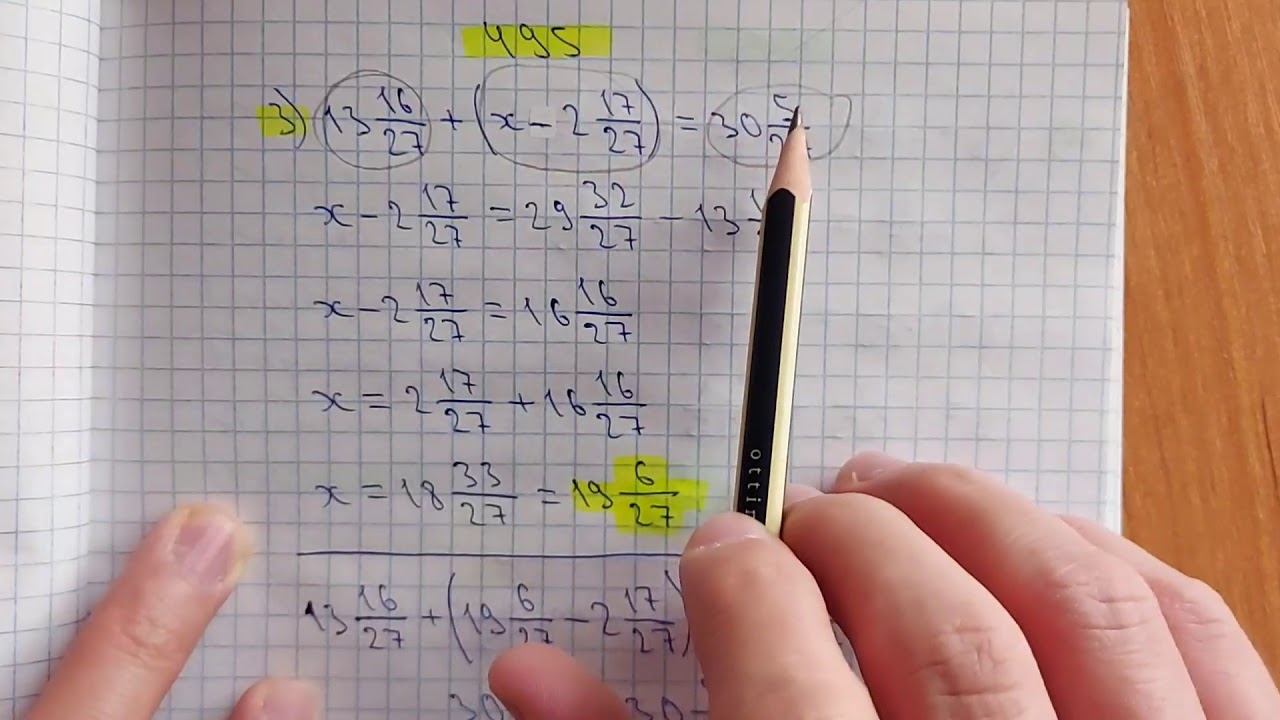 495
3) 13 16/27 + (x - 2 17/27) = 30 5/2
x - 2 17/27 = 29 32/27 - 13
x - 2 17/27 = 16 16/27
x = 2 17/27 + 16 16/27
x = 18 33/27 = 19 6/27
13 16/27 + (19 6/27 - 2 17/27)
30 30
ottin